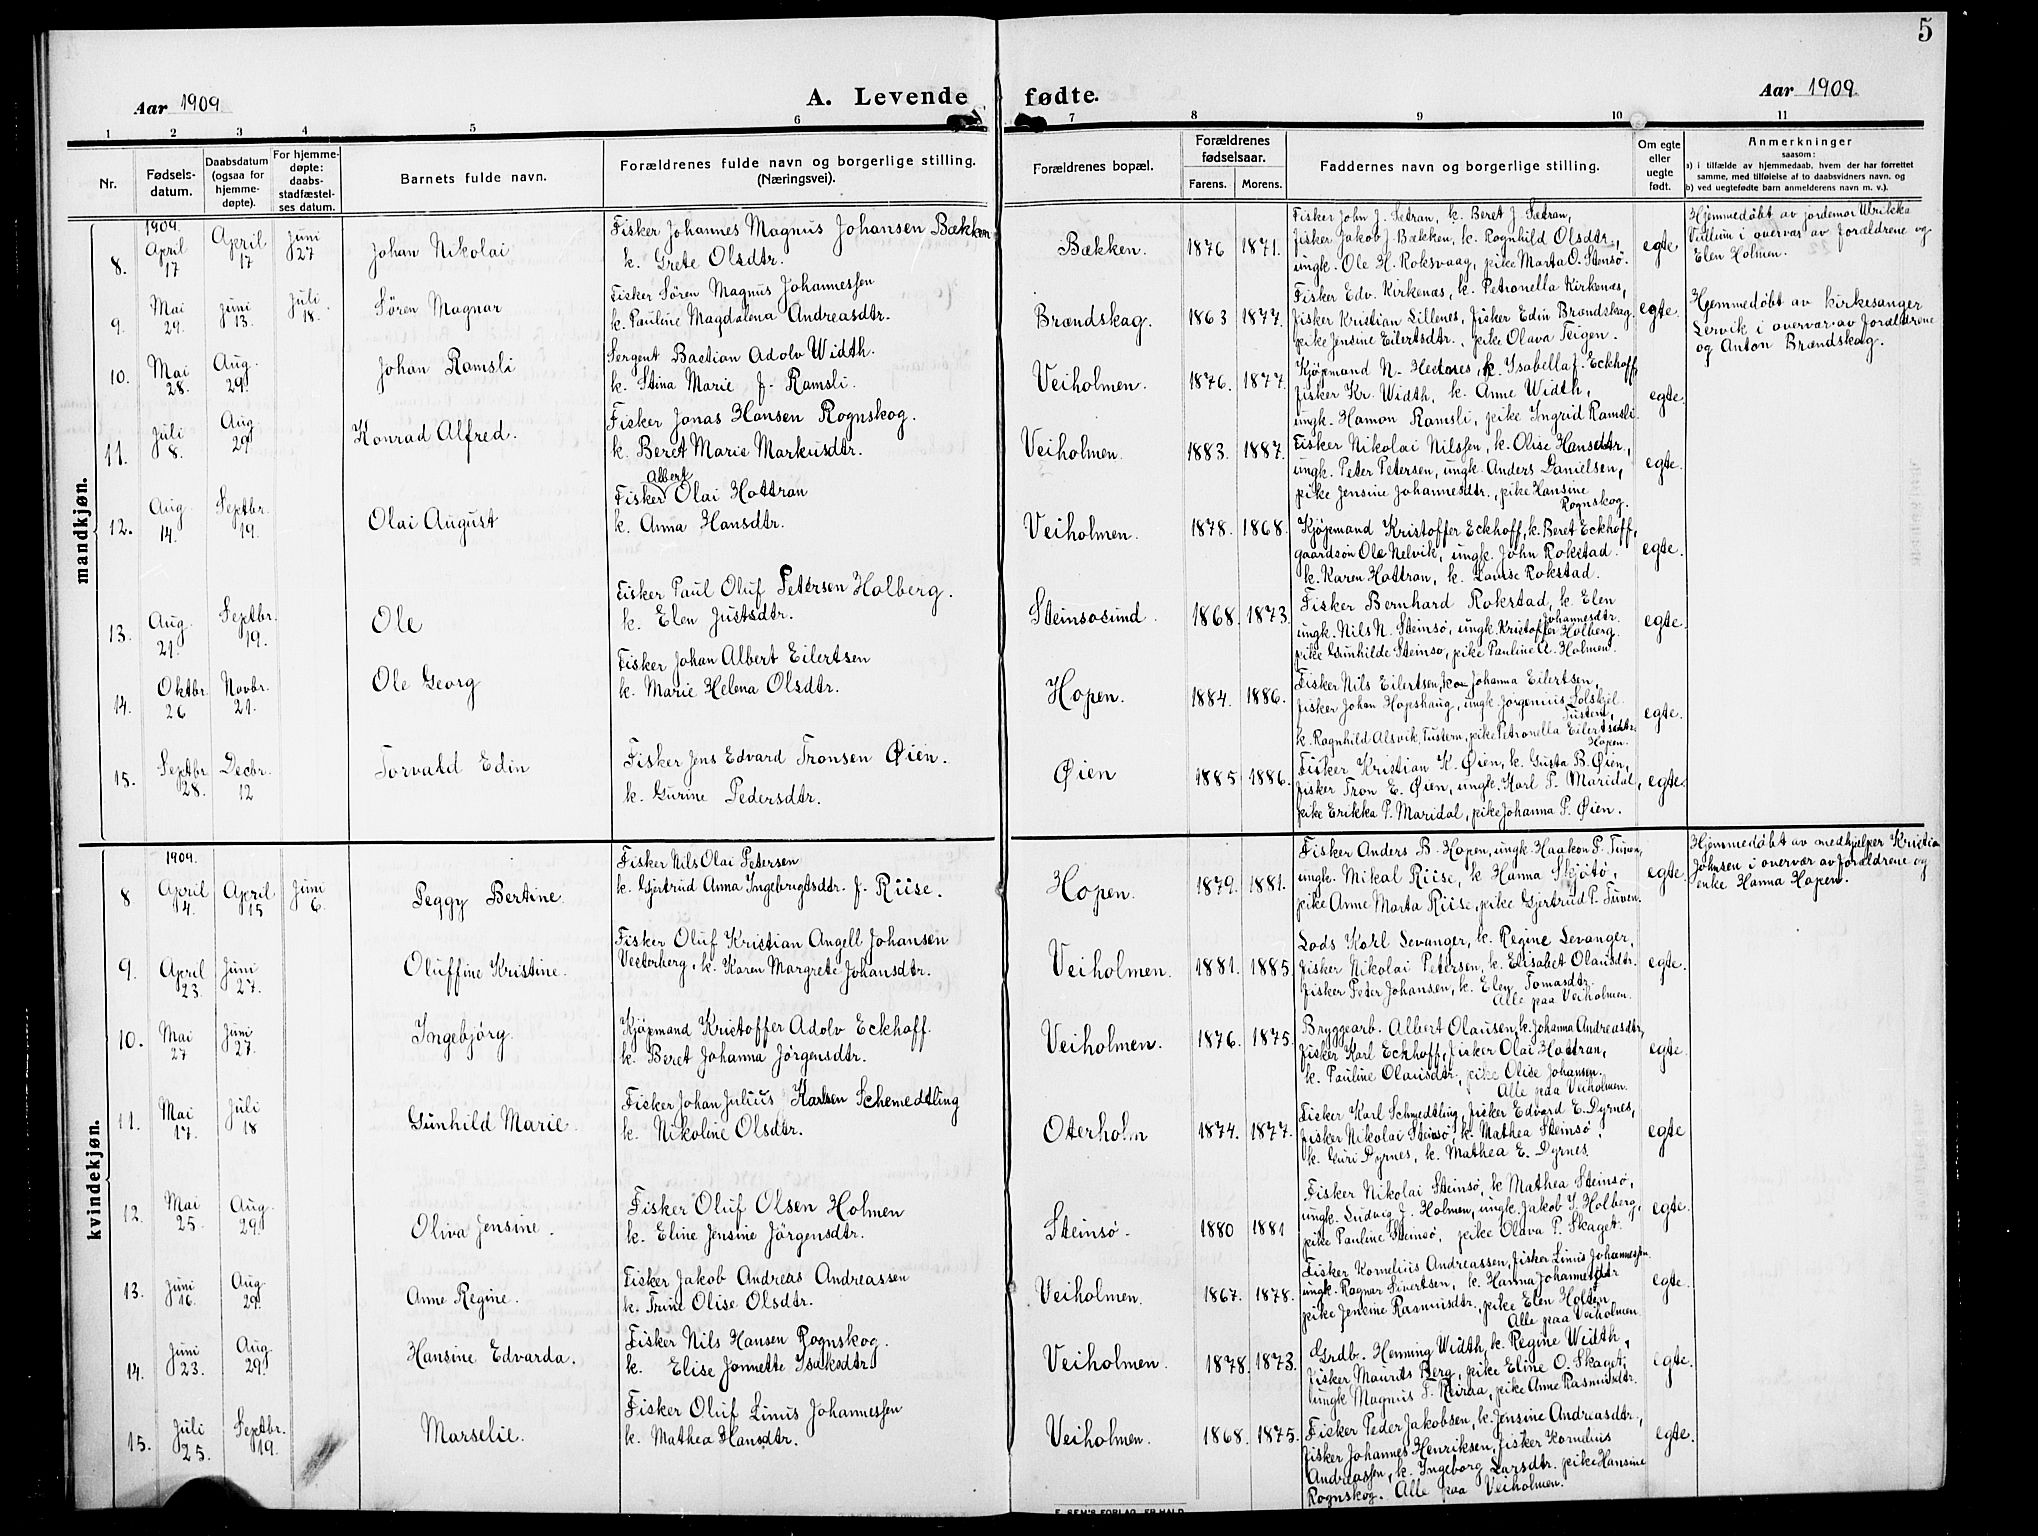 5
Aar 1909
A. Levende fødte.
Aar 1909.
1 2 3 4 5 6 7 8 9 10 11
Nr.
Fødsels-
datum.
Daabsdatum
(ogsaa for
hjemme-
døpte).
For hjemme-
døpte:
daabs-
stadfæstel-
ses datum.
Barnets fulde navn.
Forældrenes fulde navn og borgerlige stilling.
(Næringsvei).
Forældrenes bopæl.
Forældrenes
fødselsaar.
Farens. Morens.
Faddernes navn og borgerlige stilling.
Om egte
eller
uegte
født.
Anmerkninger
saasom:
a) i tilfælde av hjemmedaab, hvem der har forrettet
samme, med tilføielse af to daabsvidners navn, og
b) ved uegtefødte barn anmelderens navn m. v.).
mandkjøn.
8.
1909.
April
17
April
17
Juni
27
Johan Nikolai
Fisker Johannes Magnus Johansen Bækken
k. Grete Olsdtr.
Bækken.
1876 1871.
Fisker John J. Sætran, k. Beret J. Sætran,
fisker Jakob J. Bækken, k. Rognhild Olsdtr.,
ungk. Ole H. Roksvaag, pike Marta O. Stensø.
egte
Hjemmedøbt av jordemor Ulrikke
Vellum i overvær av forældrene og
Elen Holmen.
9.
Mai
29.
Juni
13.
Juli
18.
Søren Magnar
Fisker Søren Magnus Johannessen
k. Pauline Magdalena Andreasdtr.
Brændskag.
1863 1877.
Fisker Edv. Kirkenæs, k. Petronella Kirkenæs,
fisker Kristian Lillenes, fisker Edin Brændskag
pike Jensine Eilertsdtr., pike Olava Teigen.
egte.
Hjemmedøbt av kirkesanger
Lervik i overvær av forældrene
og Anton Brændskag.
10.
Mai
28.
Aug.
29.
Johan Ramsli
Sergent Bastian Adolv Width.
k. Stina Marie f. Ramsli.
Veiholmen.
1876. 1877.
Kjøpmand N. Hectnes, k. Ysabella f. Eckhoff,
fisker Kr. Width, k. Anne Width,
ungk. Hamon Ramsli, pike Ingrid Ramsli.
egte.
11.
Juli
8.
Aug.
29
Konrad Alfred.
Fisker Jonas Hansen Rognskog.
k. Beret Marie Markusdtr.
Veiholmen.
1883. 1887.
Fisker Nikolai Nilssen, k. Olise Hansdtr.,
ungk. Peter Petersen, ungk. Anders Danielsen,
pike Jensine Johannesdtr., pike Hansine
Rognskog.
egte.
12.
Aug.
14.
Septbr.
19.
Olai August
Albert
Fisker Olai Hottran
k. Anna Hansdtr.
Veiholmen.
1878. 1868.
Kjøpmand Kristoffer Eckhoff, k. Beret Eckhoff,
gaardsøn Ole Nelvik, ungk. John Rokstad.
k. Karen Hottran, k. Louise Rokstad.
egte.
13.
Aug.
21.
Septbr.
19.
Ole
Fisker Paul Oluf Petersen Holberg.
k. Elen Justsdtr.
Steinsosund.
1868. 1873.
Fisker Bernhard Rokstad, k. Elen
Johannesdtr.
ungk. Nils N. Steinsø, ungk. Kristoffer Holberg.
pike Gunhilde Steinsø, pike Pauline A. Holmen.
egte.
14.
Oktbr.
26
Novbr.
21.
Ole Georg
Fisker Johan Albert Eilertsen
k. Marie Helena Olsdtr.
Hopen.
1884. 1886.
Fisker Nils Eilertsen, kone Johanna Eilertsen,
fisker Johan Hopshaug, ungk. Jørgenius Solskjel
Tustern,
k. Rognhild Alsvik, Tustern, pike Petronella Eilertsdtr.
Hopen.
egte.
15.
Septbr.
28.
Decbr.
12
Torvald Edin
Fisker Jens Edvard Tronsen Øien.
k. Gurine Pedersdtr.
Øien
1885 1886.
Fisker Kristian K. Øien, k. Gusta B. Øien,
fisker Tron E. Øien, ungk. Karl P. Maridal,
pike Erikka P. Maridal, pike Johanna P. Øien.
egte.
kvindekjøn.
8
1909.
April
4.
April
15
Juni
6.
Peggy Bertine.
Fisker Nils Olai Petersen
k. Gjertrud Anna Ingebrigtsdtr. f. Riise.
Hopen.
1879. 1881.
Fisker Anders B. Hopen, ungk. Haakon P. Tuven,
ungk. Mikal Riise, k. Hanna Skjøtø,
pike Anne Marta Riise, pike Gjertrud P. Tuven.
egte.
Hjemmedøbt av medhjelper Kristian
Johnsen i overvær av forældrene og
enke Hanna Hopen.
9.
April
23.
Juni
27.
Oluffine Kristine.
Fisker Oluf Kristian Angell Johansen
Vesterberg, k. Karen Margrete Johansdtr.
Veiholmen.
1881. 1885.
Lods Karl Levanger, k. Regine Levanger,
fisker Nikolai Petersen, k. Elisabet Olausdtr.
fisker Peter Johansen, k. Elen Tomasdtr.
Alle paa Veiholmen.
egte.
10.
Mai
27
Juni
27.
Ingebjørg.
Kjøpmand Kristoffer Adolv Eckhoff.
k. Beret Johanna Jørgensdtr.
Veiholmen.
1876. 1875.
Bryggearb. Albert Olausen, k. Johanna Andreasdtr,
fisker Karl Eckhoff, fisker Olai Hottran,
k. Pauline Olausdtr., pike Olise Johansen.
Alle paa Veiholmen.
egte.
11.
Mai
17.
Juli
18
Gunhild Marie.
Fisker Johan Julius Karlsen Schemedtling
k. Nikoline Olsdtr.
Oterholm
1874. 1877.
Fisker Karl Schmedtling, fisker Edvard E. Dyrnes,
fisker Nikolai Steinsø, k. Mathea Steinsø,
k. Guri Dyrnes, k. Mathea E. Dyrnes.
egte
12.
Mai
25.
Aug.
29.
Oliva Jensine.
Fisker Oluf Olsen Holmen
k. Eline Jensine Jörgensdtr.
Steinsø.
1880 1881
Fisker Nikolai Steinsø, k. Mathea Steinsø,
ungk. Ludvig J. Holmen, ungk. Jakob J. Holberg,
pike Pauline Steinsø, pike Olava P. Skaget.
egte.
13.
Juni
16.
Aug.
29.
Anne Regine.
Fisker Jakob Andreas Andreassen
k. Trine Olise Olsdtr.
Veiholmen.
1867. 1878.
Fisker Kornelius Andreassen, fisker Linus Johannessen
ungk. Ragnar Sivertsen, k. Hanna Johannesdtr
pike Jensine Rasmusdtr., pike Elen Holten
Alle paa Veiholmen.
egte.
14.
Juni
23.
Aug.
29.
Hansine Edvarda.
Fisker Nils Hansen Rognskog.
k. Elise Jannette Isaksdtr.
Veiholmen.
1878. 1873.
Grdb. Henning Width, k. Regine Width,
fisker Maurits Berg, pike Eline O. Skaget,
ungk Magnus T. Reiraa, pike Anne Rasmusdtr.
egte.
15.
Juli
25.
Septbr.
19.
Marselie.
Fisker Oluf Linus Johannessen
k. Mathea Hansdtr.
Veiholmen.
1868. 1875.
Fisker Peder Jakobsen, k. Jensine Andreasdtr.,
fisker Johannes Henriksen, fisker Kornelius
Andreassen, k. Ingeborg Larsdtr. pike Hansine
Rognskog. Alle paa Veiholmen.
egte.
E. SEM'S FORLAG, FR.HALD